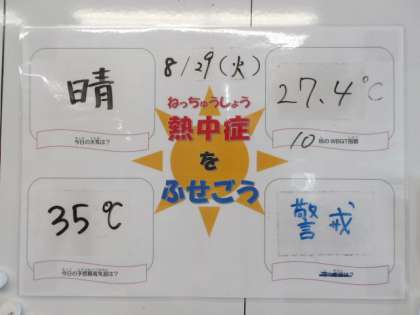 8/29(火)
晴
今日の天気は?
27.4℃
10時のWBGT指数
ねっちゅうしょう
熱中症
を
ふせごう
35℃
今日の予想最高気温は?
警戒